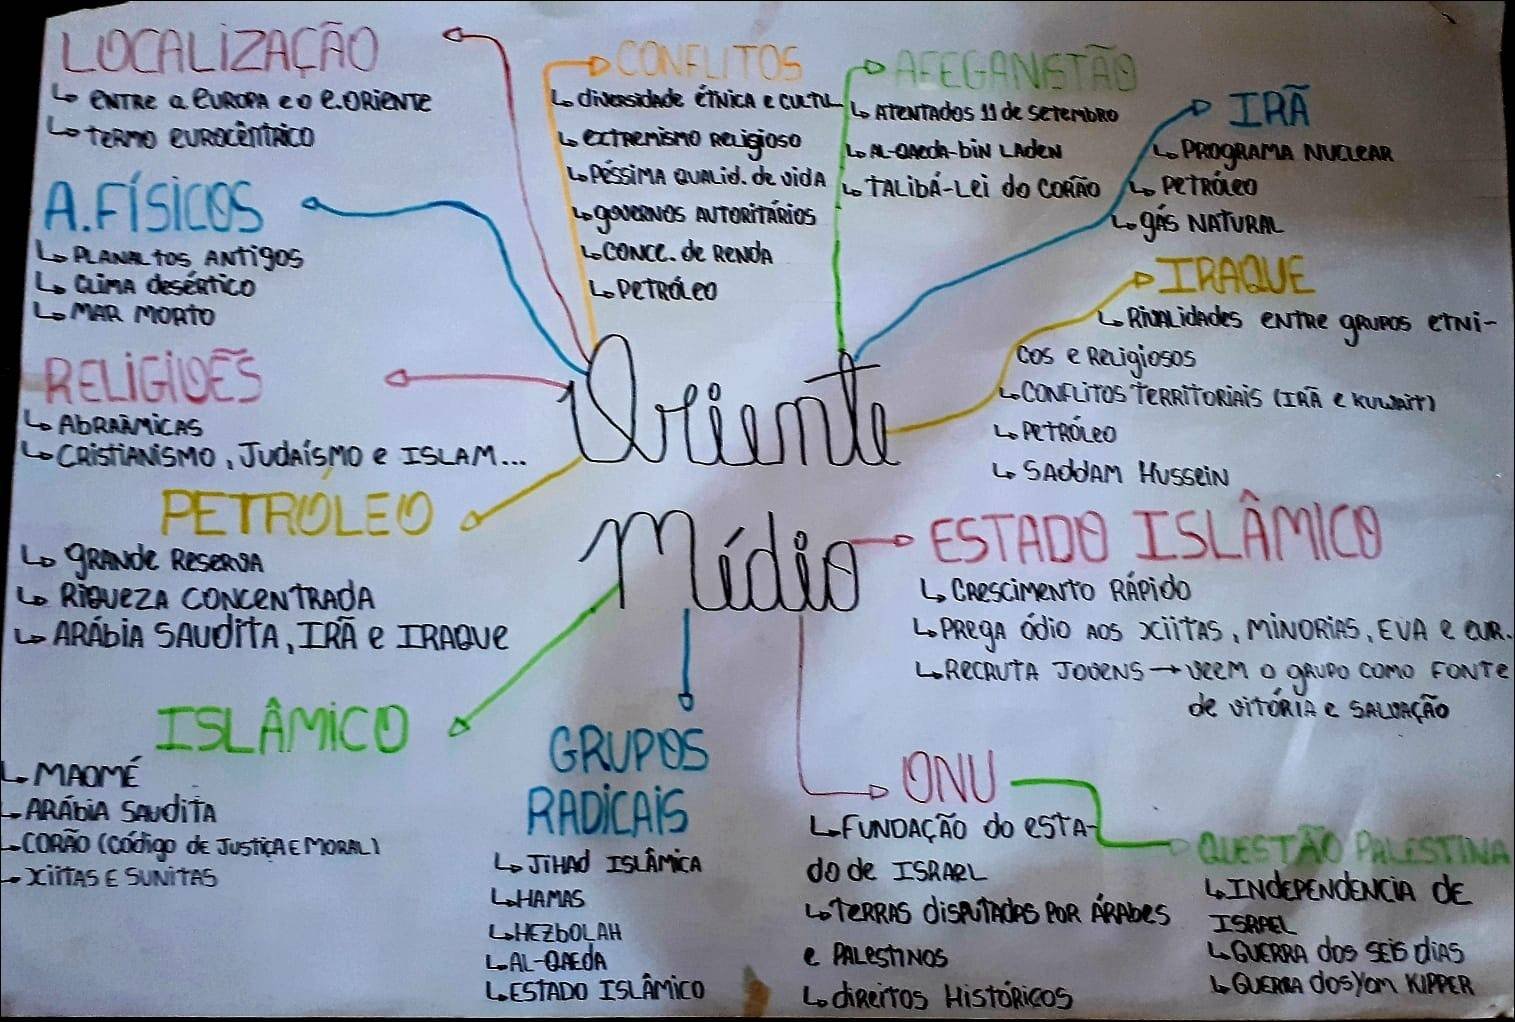 LOCALIZAÇÃO
ENTRE a EUROPA E O E.ORIENTE
TERMO EUROCÊNTRICO
A.FÍSICOS
PLANALTOS ANTIGOS
CLIMA desértico
MAR MORTO
RELIGIÕES
ABRAÂMICAS
CRISTIANISMO, JUDAÍSMO e ISLAM...
PETRÓLEO
GRANDE RESERVA
RIQUEZA CONCENTRADA
ARÁBIA SAUDITA, IRÃ e IRAQUE
ISLÂMICO
MAOMÉ
ARÁBIA SAUDITA
CORÃO (CÓDIGO DE JUSTIÇA E MORAL)
XIITAS E SUNITAS
CONFLITOS
diversidade ÉTNICA e CULTU
EXTREMISMO RELIGIOSO
PÉSSIMA QUALID. de vida
GOVERNOS AUTORITÁRIOS
CONCE. de RENDA
PETRÓLEO
AFEGANISTÃO
ATENTADOS 11 de SETEMBRO
AL-QAEDA-bin LADEN
TALIBÃ-Lei do CORÃO
IRÃ
PROGRAMA NUCLEAR
PETRÓLEO
GÁS NATURAL
IRAQUE
RIVALIDADES ENTRE GRUPOS ETNI-
COS e Religiosos
CONFLITOS TERRITORIAIS (IRÃ e KUWAIT)
PETRÓLEO
SADDAM HUSSEIN
Oriente
Médio
ESTADO ISLÂMICO
CRESCIMENTO RÁPIDO
PREGA ódio AOS XIITAS, MINORIAS, EUA e EUR.
RECRUTA JOVENS → VEEM O GRUPO COMO FONTE
de VITÓRIA e SALVAÇÃO
GRUPOS
RADICAIS
JIHAD ISLÂMICA
HAMAS
HEZBOLAH
AL-QAEDA
ESTADO ISLÂMICO
ONU
FUNDAÇÃO do ESTA-
DO de ISRAEL
TERRAS DISPUTADAS POR ÁRABES
e PALESTINOS
direitos HISTÓRICOS
QUESTÃO PALESTINA
INDEPENDENCIA DE
ISRAEL
GUERRA dos SEIS DIAS
GUERRA dos Yom KIPPER